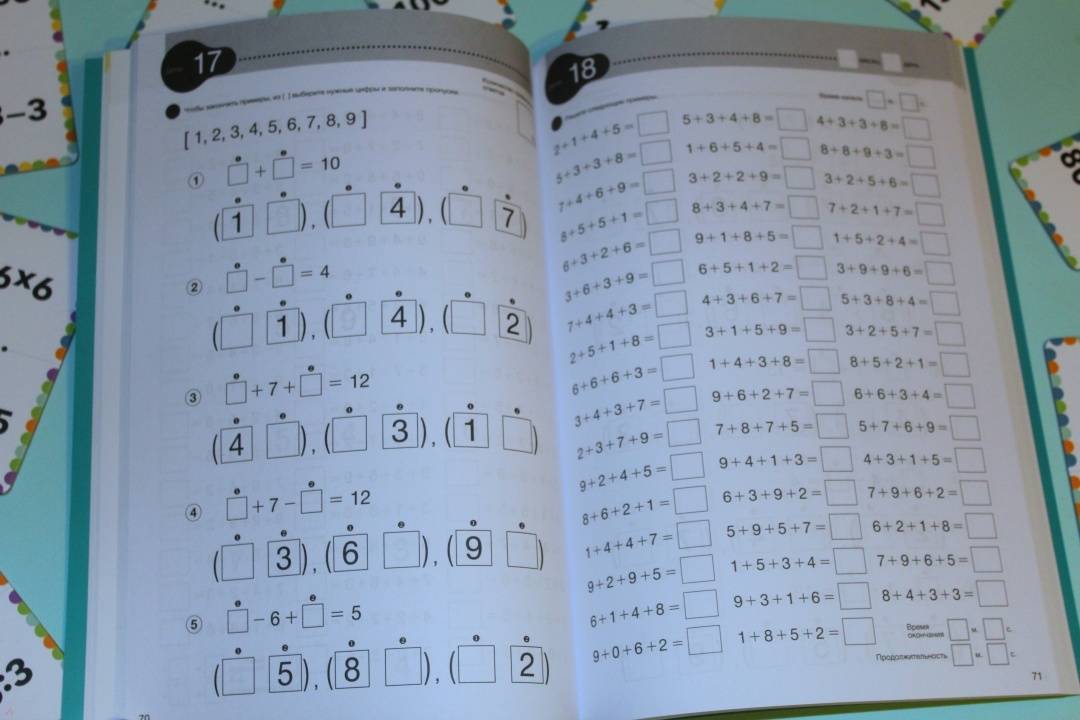 17
Чтобы закончить примеры, из [ ] выберите нужные цифры и заполните пропуски.
[ 1, 2, 3, 4, 5, 6, 7, 8, 9 ]
① □ + □ = 10
( 1 □ ), ( □ 4 ), ( □ 7 )
② □ − □ = 4
( □ 1 ), ( □ 4 ), ( □ 2 )
③ □ + 7 + □ = 12
( 4 □ ), ( □ 3 ), ( 1 □ )
④ □ + 7 − □ = 12
( □ 3 ), ( 6 □ ), ( 9 □ )
⑤ □ − 6 + □ = 5
( □ 5 ), ( 8 □ ), ( □ 2 )
70
18
Решите следующие примеры.
Время начала м. с.
2+1+4+5=
5+3+3+8=
7+4+6+9=
8+5+5+1=
6+3+2+6=
3+6+3+9=
7+4+4+3=
2+5+1+8=
6+6+6+3=
3+4+3+7=
2+3+7+9=
9+2+4+5=
8+6+2+1=
1+4+4+7=
9+2+9+5=
6+1+4+8=
9+0+6+2=
5+3+4+8=
1+6+5+4=
3+2+2+9=
8+3+4+7=
9+1+8+5=
6+5+1+2=
4+3+6+7=
3+1+5+9=
1+4+3+8=
9+6+2+7=
7+8+7+5=
9+4+1+3=
6+3+9+2=
5+9+5+7=
1+5+3+4=
9+3+1+6=
1+8+5+2=
4+3+3+8=
8+8+9+3=
3+2+5+6=
7+2+1+7=
1+5+2+4=
3+9+9+6=
5+3+8+4=
3+2+5+7=
8+5+2+1=
6+6+3+4=
5+7+6+9=
4+3+1+5=
7+9+6+2=
6+2+1+8=
7+9+6+5=
8+4+3+3=
Время
окончания м. с.
Продолжительность м. с.
71